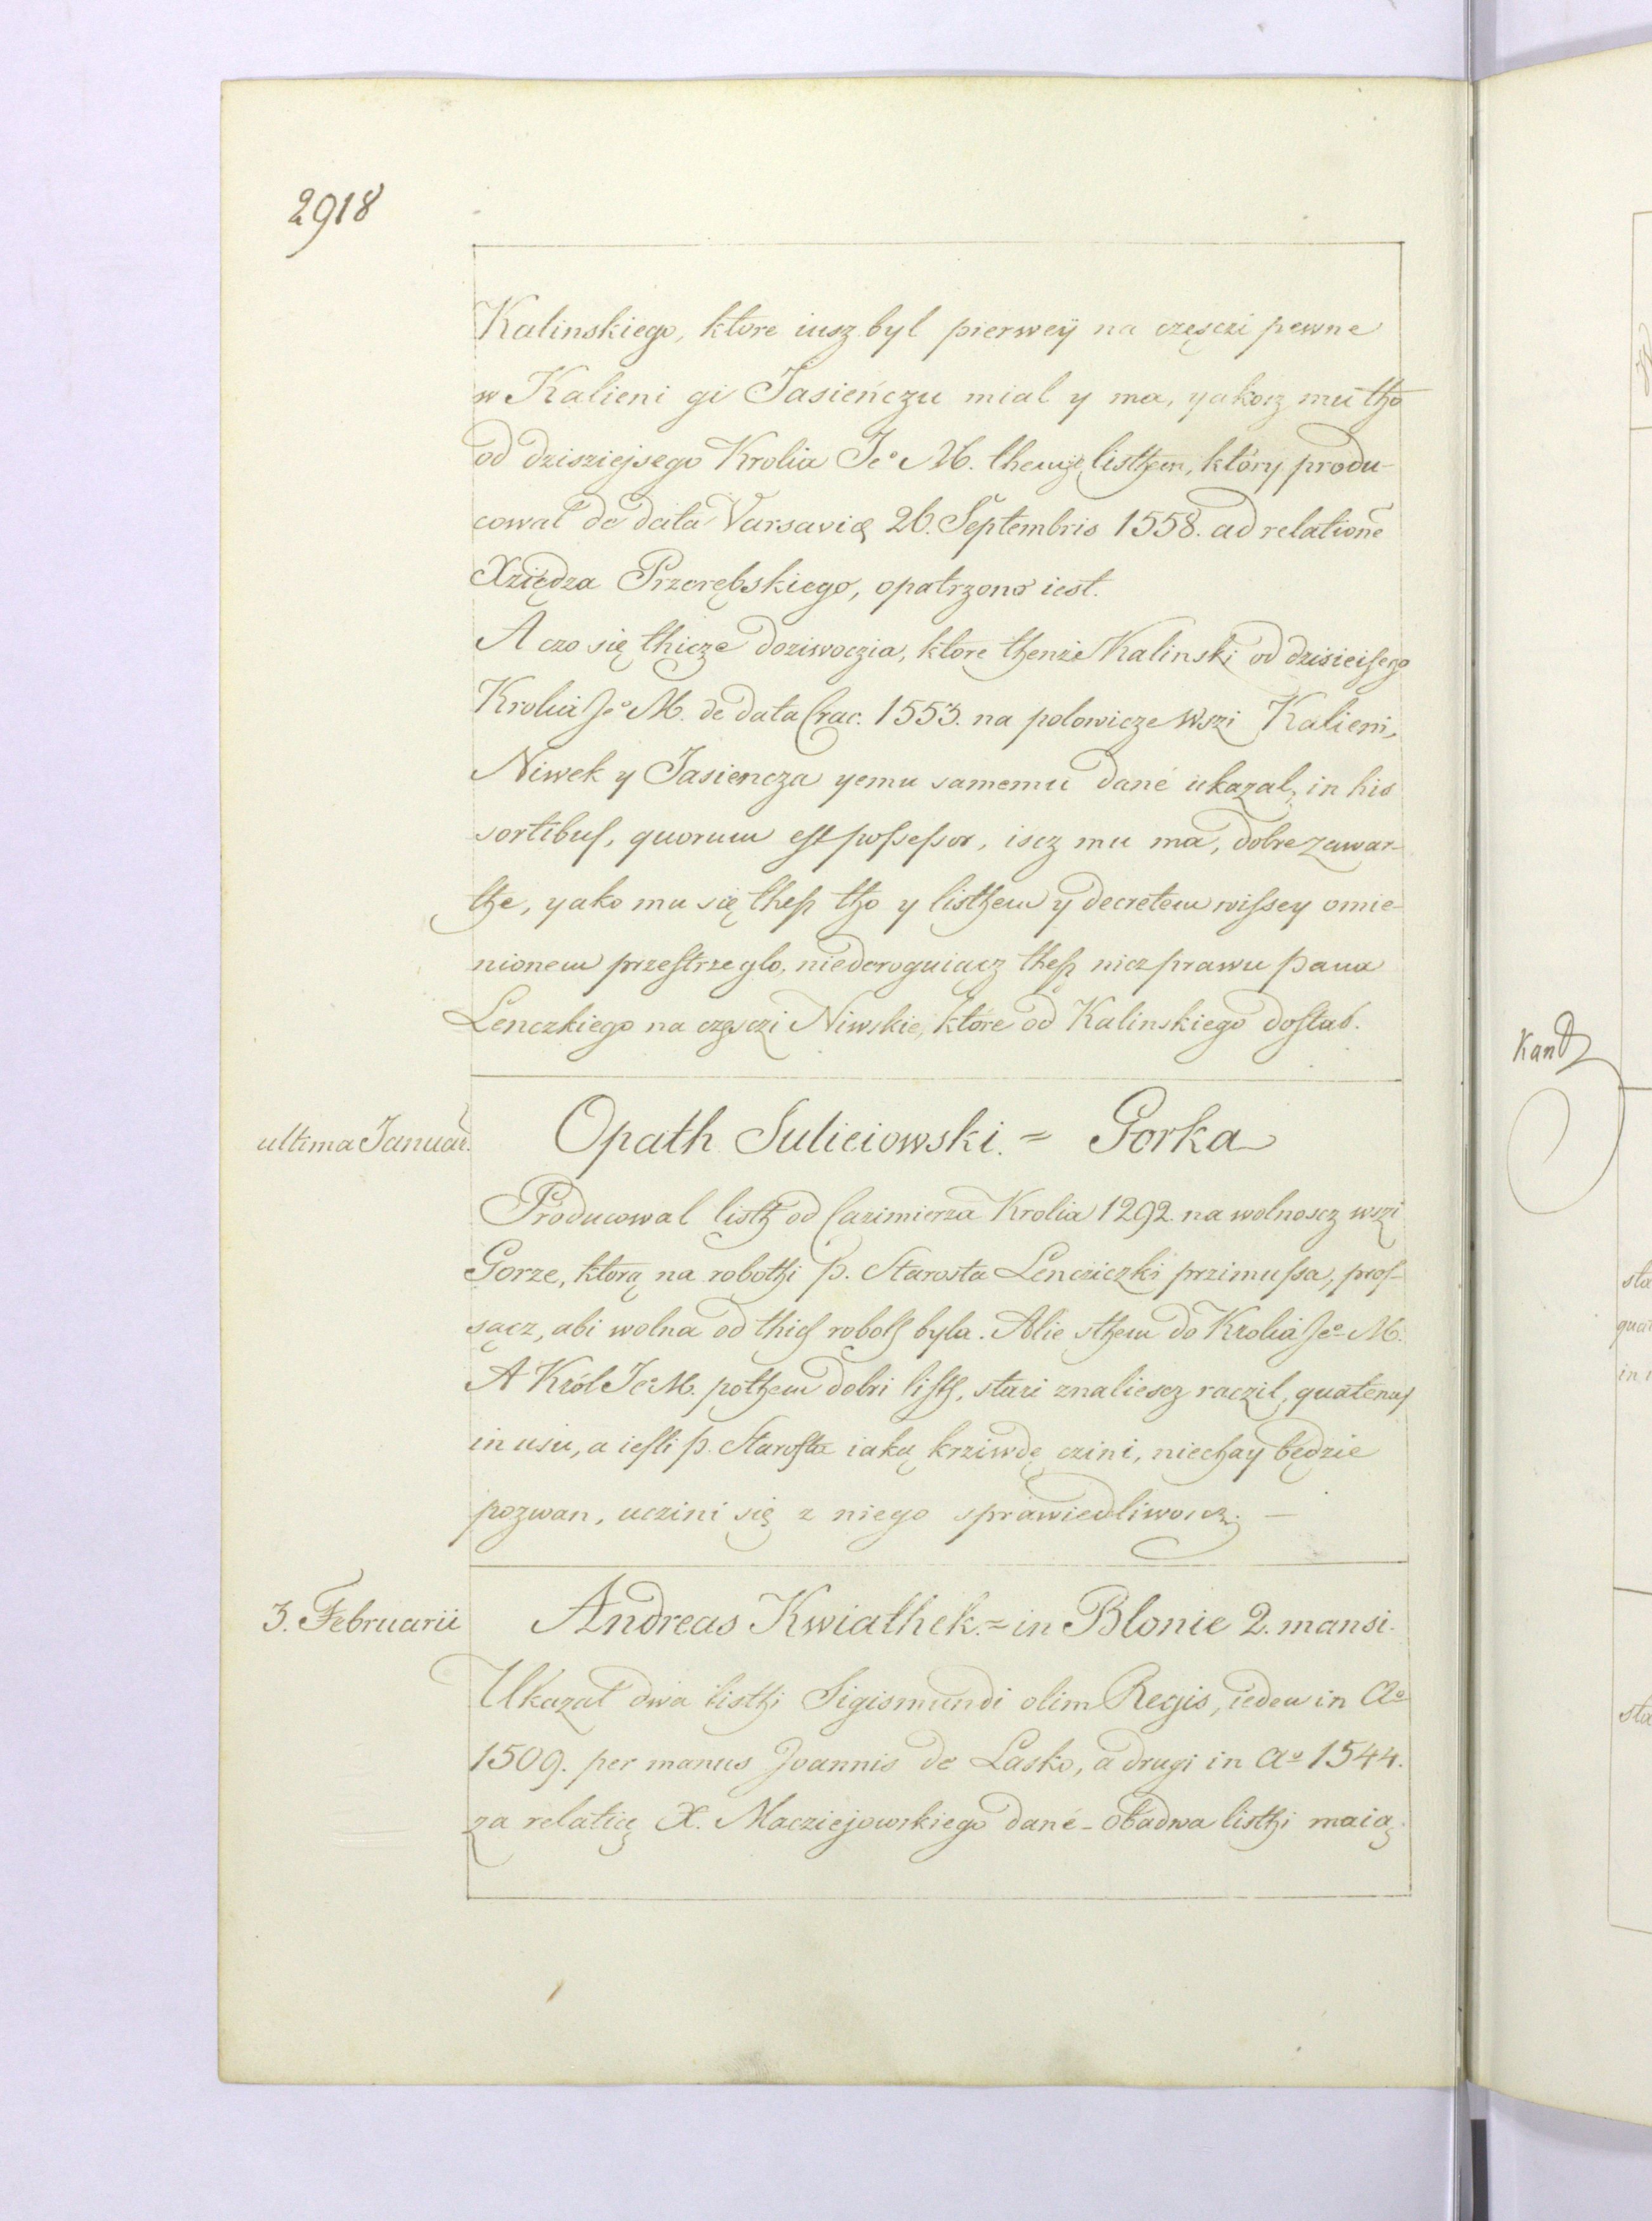 2918
Kalinskiego, ktore iusz byl pierwey na częsczi pewne
w Kalieni gi Jasieńczu mial y ma, yakosz mu tho
od dzisziejsego Krolia Je° M. themże listhem, który produ-
cowal de data Varsaviæ 26. Septembris 1558. ad relationē
Xziędza Przerębskiego, opatrzono iest.
A czo się thicze doziwoczia, ktore thenże Kalinski od dzisieisego
Krolia Je° M. de data Crac. 1553. na polowicze wszi Kalieni,
Niwek y Jasiencza yemu samemu dané ukazal, in his
sortibus, quorum est possessor, iscz mu ma, dobre zawar-
the, yako mu się thesz tho y listhem y decretem wissey omie-
nionem przestrzeglo, niederoguiącz thesz nicz prawu pana
Lenczkiego na częsczi Niwskie, ktore od Kalinskiego dostal.
ultima Januar.
Opath Suliciowski. = Gorka
Producowal listh od Cazimierza Krolia 1292. na wolnoscz wszi
Gorze, ktorą na robothi p. Starosta Lencziczki przimussa, pros-
sącz, abi wolna od thich roboth byla. Alie sthem do Krolia Je° M.
A Król Je° M. pothem dobri listh, stari znaliescz raczil, quatenus
in usu, a iesli p. Starosta iaką krziwdę czini, niechay będzie
pozwan, uczini się z niego sprawiedliwoscz. —
3. Februarii
Andreas Kwiathek. = in Blonie 2. mansi.
Ukazal dwa listhi Sigismundi olim Regis, ieden in A°
1509. per manus Joannis de Lasko, a drugi in A° 1544.
za relatią X. Macziejowskiego dané - obadwa listhi maią
Kan
sta
quat
in
sta